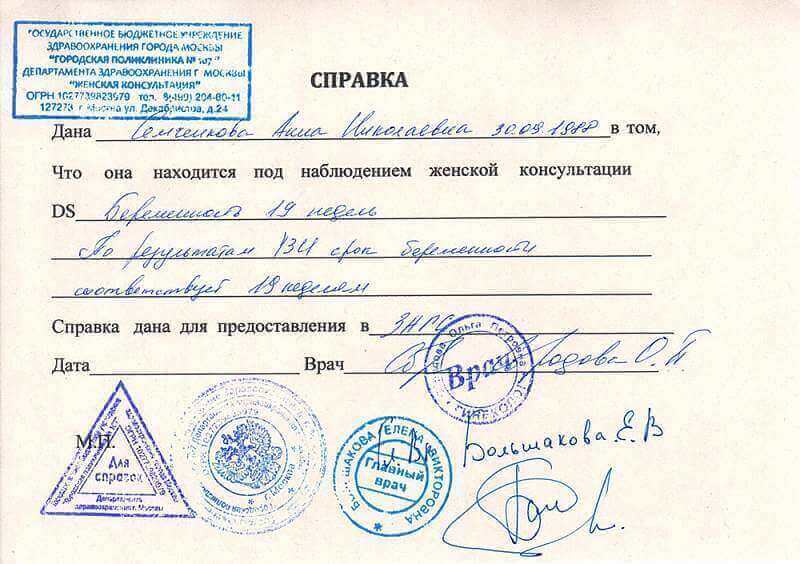 ГОСУДАРСТВЕННОЕ БЮДЖЕТНОЕ УЧРЕЖДЕНИЕ
ЗДРАВООХРАНЕНИЯ ГОРОДА МОСКВЫ
"ГОРОДСКАЯ ПОЛИКЛИНИКА № 107
ДЕПАРТАМЕНТА ЗДРАВООХРАНЕНИЯ Г МОСКВЫ
"ЖЕНСКАЯ КОНСУЛЬТАЦИЯ"
ОГРН 1027739823979 тел. 8(499) 204-80-11
127273 г. Москва ул. Декабристов, д.24
СПРАВКА
Дана Семченкова Анна Николаевна 30.09.1988 в том,
Что она находится под наблюдением женской консультации
DS Беременность 19 недель
По результатам УЗИ срок беременности
соответствует 19 неделям
Справка дана для предоставления в ЗАГС
Дата Врач О.П.
Ольга Петровна
Врач
М.П.
Для
справок
Департамент
здравоохранения г. Москвы
БОЛЬШАКОВА ЕЛЕНА ВИКТОРОВНА
Главный
врач
Большакова Е.В